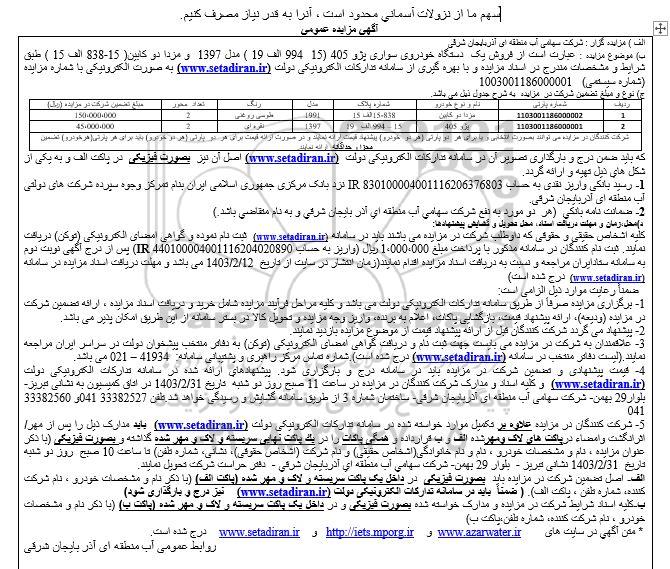 سهم ما از نزولات آسمانی محدود است ، آنرا به قدر نیاز مصرف کنیم.
آگهی مزایده عمومی
الف ) مزایده گزار : شرکت سهامی آب منطقه ای آذربایجان شرقی
ب) موضوع مزایده : عبارت است از فروش یک دستگاه خودروی سواری پژو 405 (15 994 الف 19 ) مدل 1397 و مزدا دو کابین( 15-838 الف 15 ) طبق
شرایط و مشخصات مندرج در اسناد مزایده و با بهره گیری از سامانه تدارکات الکترونیکی دولت (www.setadiran.ir) به صورت الکترونیکی با شماره مزایده
(شماره سیستمی) 1003001186000001
ج) نوع و مبلغ تضمین شرکت در مزایده به شرح جدول ذیل می باشد.
ردیف شماره پارتی نام و نوع خودرو شماره پلاک مدل رنگ تعداد محور مبلغ تضمین شرکت در مزایده (ریال)
1 1103001186000002 مزدا دو کابین 838-15الف 15 1991 طوسی روغنی 2 150-000-000
2 1103001186000001 پژو 405 15 – 994 الف 19 1397 نقره ای 2 45-000-000
شرکت کنندگان در مزایده می توانند بصورت انتخابی و یا برای هر دو پارتی (هر دو خودرو) پیشنهاد قیمت ارائه نمایند و در صورت ارائه قیمت برای هر دو پارتی (هر دو خودرو) باید برای هر پارتی(هرخودرو) تضمین
مجزا و جداگانه ارائه نمایند.
که باید ضمن درج و بارگذاری تصویر آن در سامانه تدارکات الکترونیکی دولت (www.setadiran.ir) اصل آن نیز بصورت فیزیکی در پاکت الف و به یکی از
شکل های ذیل تهیه و ارائه گردد.
1- رسید بانکی واریز نقدی به حساب IR 830100004001116206376803 نزد بانک مرکزی جمهوری اسلامی ایران بنام تمرکز وجوه سپرده شرکت های دولتی
آب منطقه ای آذربایجان شرقی.
2- ضمانت نامه بانکی (هر دو مورد به نفع شرکت سهامی آب منطقه ای آذر بایجان شرقی و به نام متقاضی باشد.)
د)محل،زمان و مهلت دریافت اسناد، محل تحویل و گشایش پیشنهادها:
کلیه اشخاص حقیقی و حقوقی که داوطلب شرکت در مزایده می باشند باید در سامانه (www.setadiran.ir) ثبت نام نموده و گواهی امضای الکترونیکی (توکن) دریافت
نمایند. ثبت نام کنندگان در سامانه مذکور با پرداخت مبلغ 1-000-000 ریال (واریز به حساب IR 440100004001116204020890) پس از درج آگهی نوبت دوم
به سامانه ستادایران مراجعه و نسبت به دریافت اسناد مزایده اقدام نمایند(زمان انتشار در سایت از تاریخ 1403/2/12 می باشد و مهلت دریافت اسناد مزایده در سامانه
(www.setadiran.ir) درج شده است)
ضمناً رعایت موارد ذیل الزامی است:
1- برگزاری مزایده صرفاً از طریق سامانه تدارکات الکترونیکی دولت می باشد و کلیه مراحل فرآیند مزایده شامل خرید و دریافت اسناد مزایده ، ارائه تضمین شرکت
در مزایده (ودیعه)، ارائه پیشنهاد قیمت، بازگشایی پاکات، اعلام به برنده، واریز وجه مزایده و تحویل کالا در بستر سامانه از این طریق امکان پذیر می باشد.
2- پیشنهاد می گردد شرکت کنندگان قبل از ارائه پیشنهاد قیمت از موضوع مزایده بازدید نمایند.
3- علاقمندان به شرکت در مزایده می بایست جهت ثبت نام و دریافت گواهی امضای الکترونیکی (توکن) به دفاتر منتخب پیشخوان دولت در سراسر ایران مراجعه
نمایند.(لیست دفاتر منتخب در سامانه (www.setadiran.ir) درج شده است) شماره تماس مرکز راهبری و پشتیبانی سامانه: 41934 – 021 می باشد.
4- قیمت پیشنهادی و تضمین شرکت در مزایده باید در سامانه درج و بارگزاری شود. پیشنهادهای ارائه شده در سامانه تدارکات الکترونیکی دولت
(www.setadiran.ir) و کلیه اسناد و مدارک شرکت کنندگان در مزایده در ساعت 11 صبح روز دو شنبه تاریخ 1403/2/31 در اتاق کمیسیون به نشانی تبریز-
بلوار29 بهمن- شرکت سهامی آب منطقه ای آذربایجان شرقی- ساختمان شماره 3 از طریق سامانه گشایش و رسیدگی خواهد شد تلفن 33382527 041 و33382560
041
5- شرکت کنندگان در مزایده علاوه بر تکمیل موارد خواسته شده در سامانه تدارکات الکترونیکی دولت (www.setadiran.ir) باید مدارک ذیل را پس از مهر/
اثرانگشت وامضاء درپاکت های لاک ومهرشده الف و ب قرارداده و همگی پاکات را در یک پاکت نهایی سربسته و لاک و مهر شده گذاشته و بصورت فیزیکی (با ذکر
عنوان مزایده ، نام و مشخصات خودرو ، نام و نام خانوادگی(اشخاص حقیقی) و نام شرکت (اشخاص حقوقی)، نشانی، شماره تلفن) تا ساعت 10 صبح روز دو شنبه
تاریخ 1403/2/31 نشانی تبریز - بلوار 29 بهمن- شرکت سهامی آب منطقه ای آذربایجان شرقی - دفتر حراست شرکت تحویل نمایند.
الف. اصل تضمین شرکت در مزایده باید بصورت فیزیکی در داخل یک پاکت سربسته و لاک و مهر شده (پاکت الف) (با ذکر نام و مشخصات خودرو ، نام شرکت
کننده، شماره تلفن ، پاکت الف). ( ضمناً باید در سامانه تدارکات الکترونیکی دولت (www.setadiran.ir) نیز درج و بارگذاری شود)
ب.کلیه اسناد شرایط شرکت در مزایده و مدارک خواسته شده بصورت فیزیکی و در داخل یک پاکت سربسته و لاک و مهر شده (پاکت ب) (با ذکر نام و مشخصات
خودرو ، نام شرکت کننده، شماره تلفن،پاکت ب)
* متن آگهی در سایت های www.azarwater.ir و http://iets.mporg.ir و www.setadiran.ir درج شده است.
روابط عمومی آب منطقه ای آذر بایجان شرقی